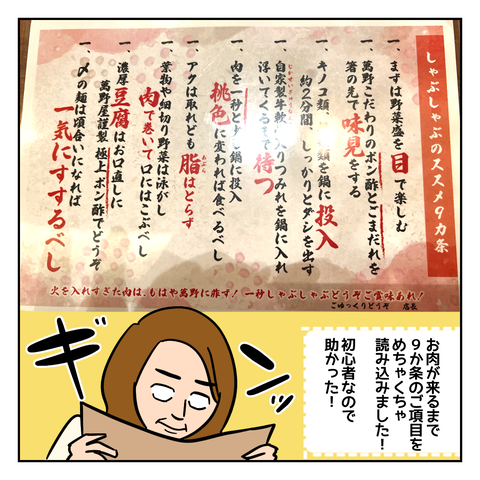 しゃぶしゃぶのススメ9カ条
一、まずは野菜盛を目で楽しむ
一、萬野こだわりのポン酢とごまだれを
箸の先で味見をする
一、キノコ類、
類を鍋に投入
約2分間、しっかりとダシを出す
一、自家製牛軟
入りつみれを鍋に入れ
じかせい
浮いてくるまで待つ
一、肉を一秒とダシ鍋に投入
桃色に変われば食べるべし
一、アクは取れども脂はとらず
あぶら
一、葉物や細切り野菜は泳がし
肉で巻いて口にはこぶべし
一、濃厚豆腐はお口直しに
萬野屋謹製 極上ポン酢でどうぞ
一、〆の麺は頃合いになれば
一気にすするべし
火を入れすぎた肉は、もはや萬野に非ず!一秒しゃぶしゃぶどうぞご賞味あれ!
ごゆっくりどうぞ 店長
お肉が来るまで
9か条のご項目を
めちゃくちゃ
読み込みました!
初心者なので
助かった!
ギンッ